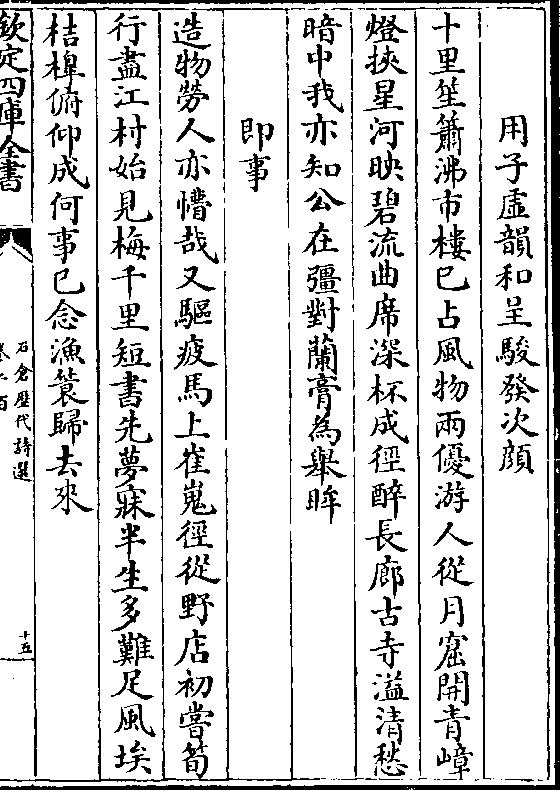 用子虛韻和呈駿發次顔
十里笙簫沸市樓已占風物兩優游人從月窟開青嶂
燈挾星河映碧流曲席深杯成徑醉長廊古寺溢清愁
暗中我亦知公在彊對蘭膏為舉眸
即事
造物勞人亦懵哉又驅疲馬上崔嵬徑從野店初嘗筍
行盡江村始見梅千里短書先夢寐半生多難足風埃
桔槔俯仰成何事已念漁簑歸去來
欽定四庫全書
石倉歷代詩選
十五